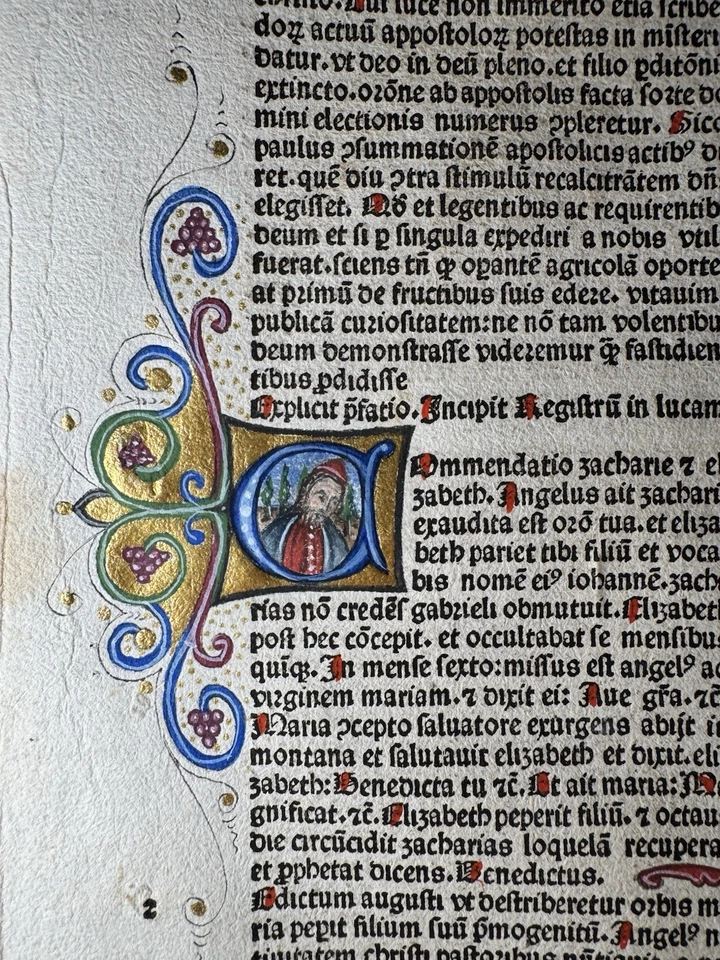 dorꝝ actuū appostolorꝝ potestas in misteri
datur.vt deo in deū pleno.et filio ꝑditōni
extincto.orōne ab appostolis facta sorte do
mini electionis numerus ꝯpleretur. Sicq
paulus ꝯsummationē apostolicis actibꝰ d
ret.quē diu ꝯtra stimulū recalcitrātem dn̄
elegisset. Qd̓ et legentibus ac requirentib
deum et si ꝑ singula expediri a nobis vtil
fuerat.sciens tn̄ ꝙ oꝑantē agricolā oporte
at primū de fructibus suis edere. vitauim
publicā curiositatem:ne nō tam volentibu
deum demonstrasse videremur ꝙ̄ fastidien
tibus ꝓdidisse
Explicit p̄fatio. Incipit Registrū in lucam
COmmendatio zacharie ⁊ el
zabeth. Angelus ait zachari
exaudita est orō tua.et eliza
beth pariet tibi filiū et voca
bis nomē eiꝰ iohannē.zach
rias nō credēs gabrieli obmutuit. Elizabet
post hec cōcepit. et occultabat se mensibus
quīqꝫ. In mense sexto:missus est angelꝰ ad
virginem mariam.⁊ dixit ei: Aue gr̄a. ⁊c̄
Maria ꝯcepto saluatore exurgens abijt i
montana et salutauit elizabeth et dixit.eli
zabeth: Benedicta tu ⁊c̄. Et ait maria: Ma
gnificat.⁊c̄. Elizabeth peperit filiū. ⁊ octau
die circūcidit zacharias loquelā recupera
et ꝓphetat dicens. Benedictus.
2
Edictum augusti vt describeretur orbis m
ria pepit filium suū p̄mogenitū. Angelꝰ n